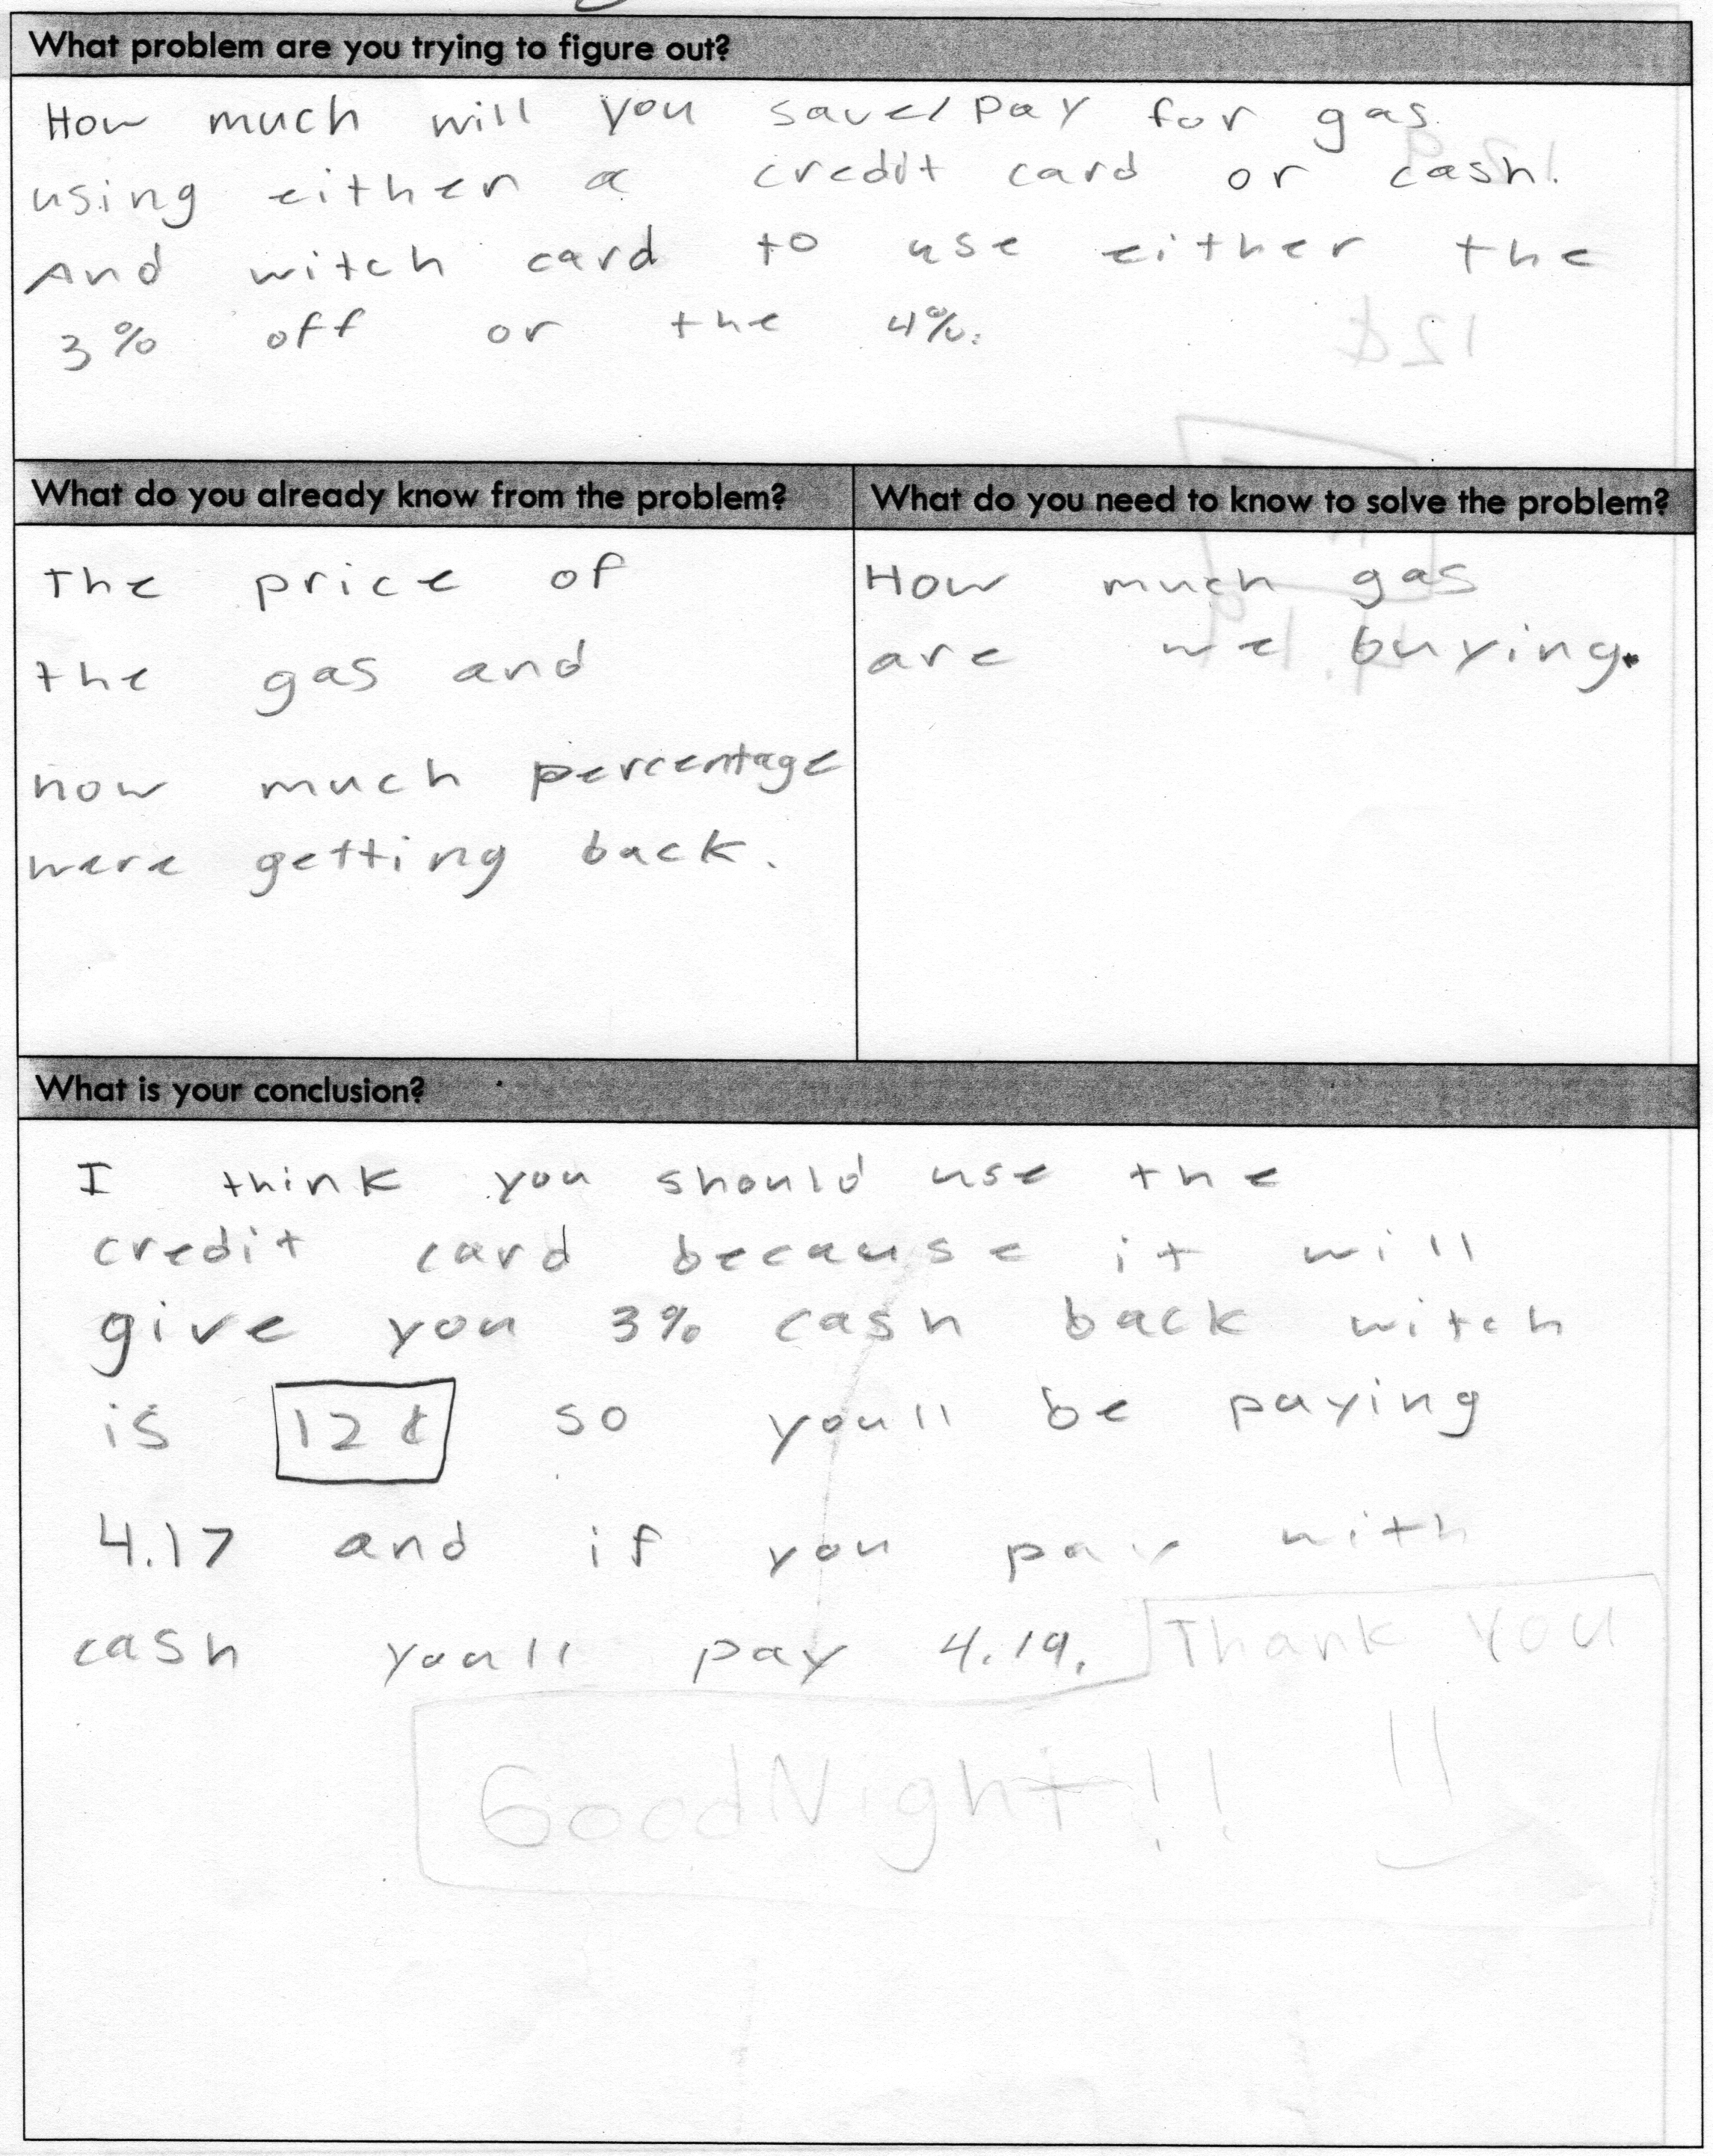 What problem are you trying to figure out?
How much will you save/pay for gas
using either a credit card or cash.
And witch card to use either the
3% off or the 4%.
What do you already know from the problem?
The price of
the gas and
how much percentage
were getting back.
What do you need to know to solve the problem?
How much gas
are we buying.
What is your conclusion?
I think you should use the
credit card because it will
give you 3% cash back witch
is 12¢ so you'll be paying
4.17 and if you pay with
cash you'll pay 4.19. Thank You
GoodNight!!